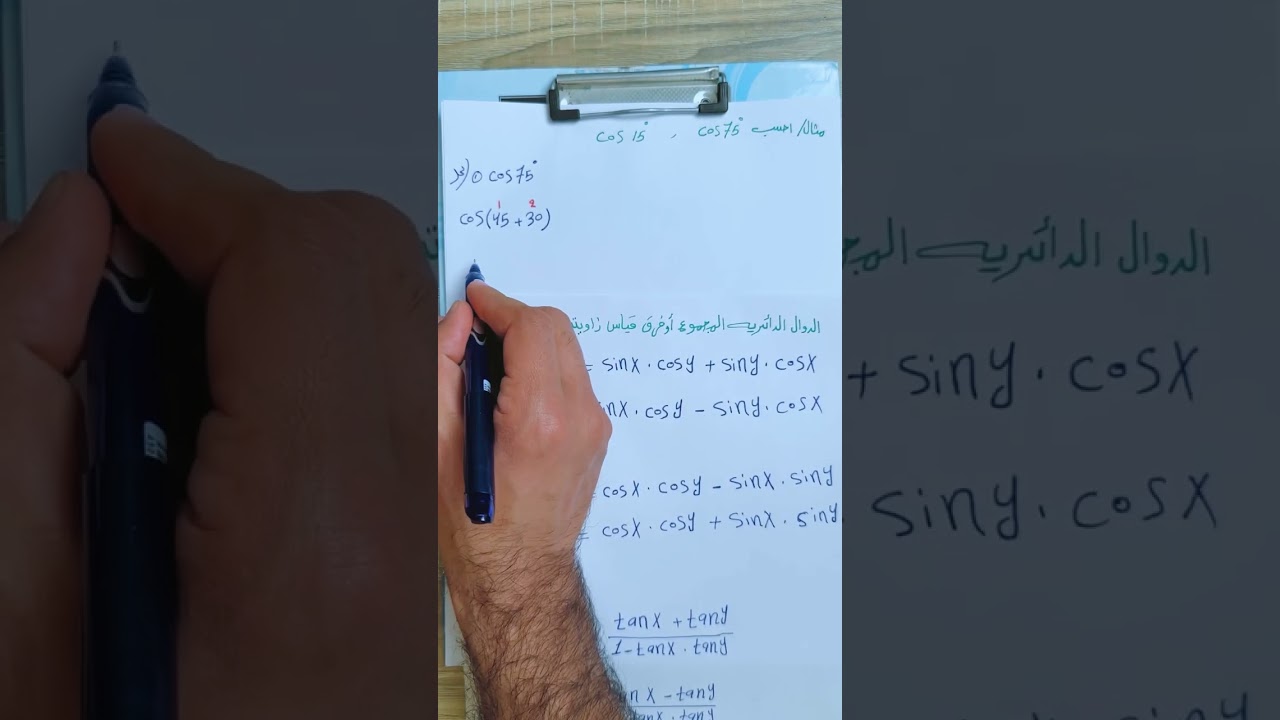 مثال/ احسب cos 75° , cos 15°
① cos 75°
1 2
cos(45 + 30)
الدوال الدائريه المجموع أو فرق قياس
= sinx · cosy + siny · cosx
· cosy − siny · cosx
= cosx · cosy − sinx · siny
= cosx · cosy + sinx · siny
tanx + tany
1 − tanx · tany
x − tany
· tany
الدوال الدائريه
+ siny · cosx
siny · cosx